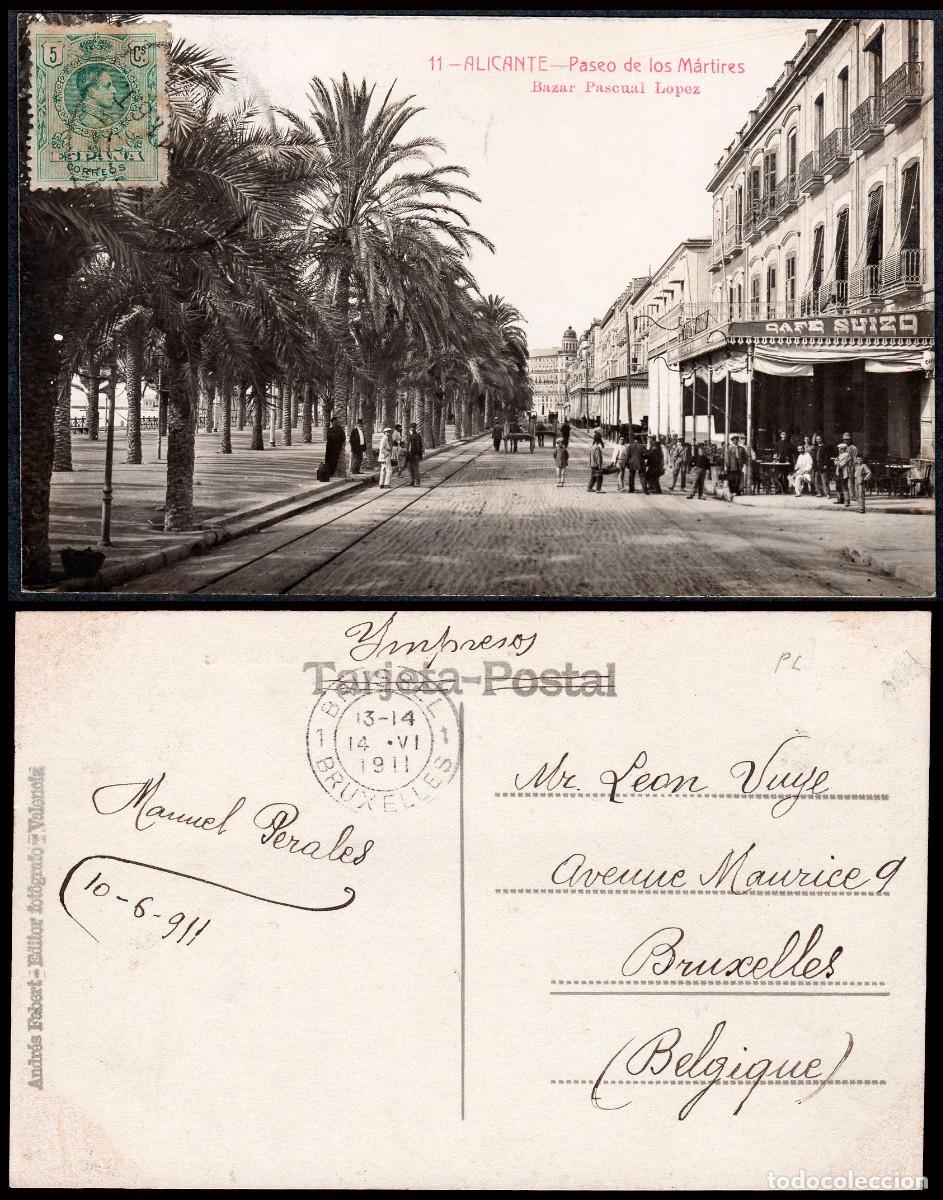 5 Cs
ESPAÑA
CORREOS
11 – ALICANTE – Paseo de los Mártires
Bazar Pascual Lopez
CAFÉ SUIZO
Ympresos
Tarjeta-Postal
PL
BRUSSEL
1 13-14 1
14 •VI
1911
BRUXELLES
Manuel Perales
10-6-911
Mr. Leon Vuye
Avenue Maurice 9
Bruxelles
(Belgique)
Andrés Fabert - Editor fotógrafo - Valencia
todocoleccion